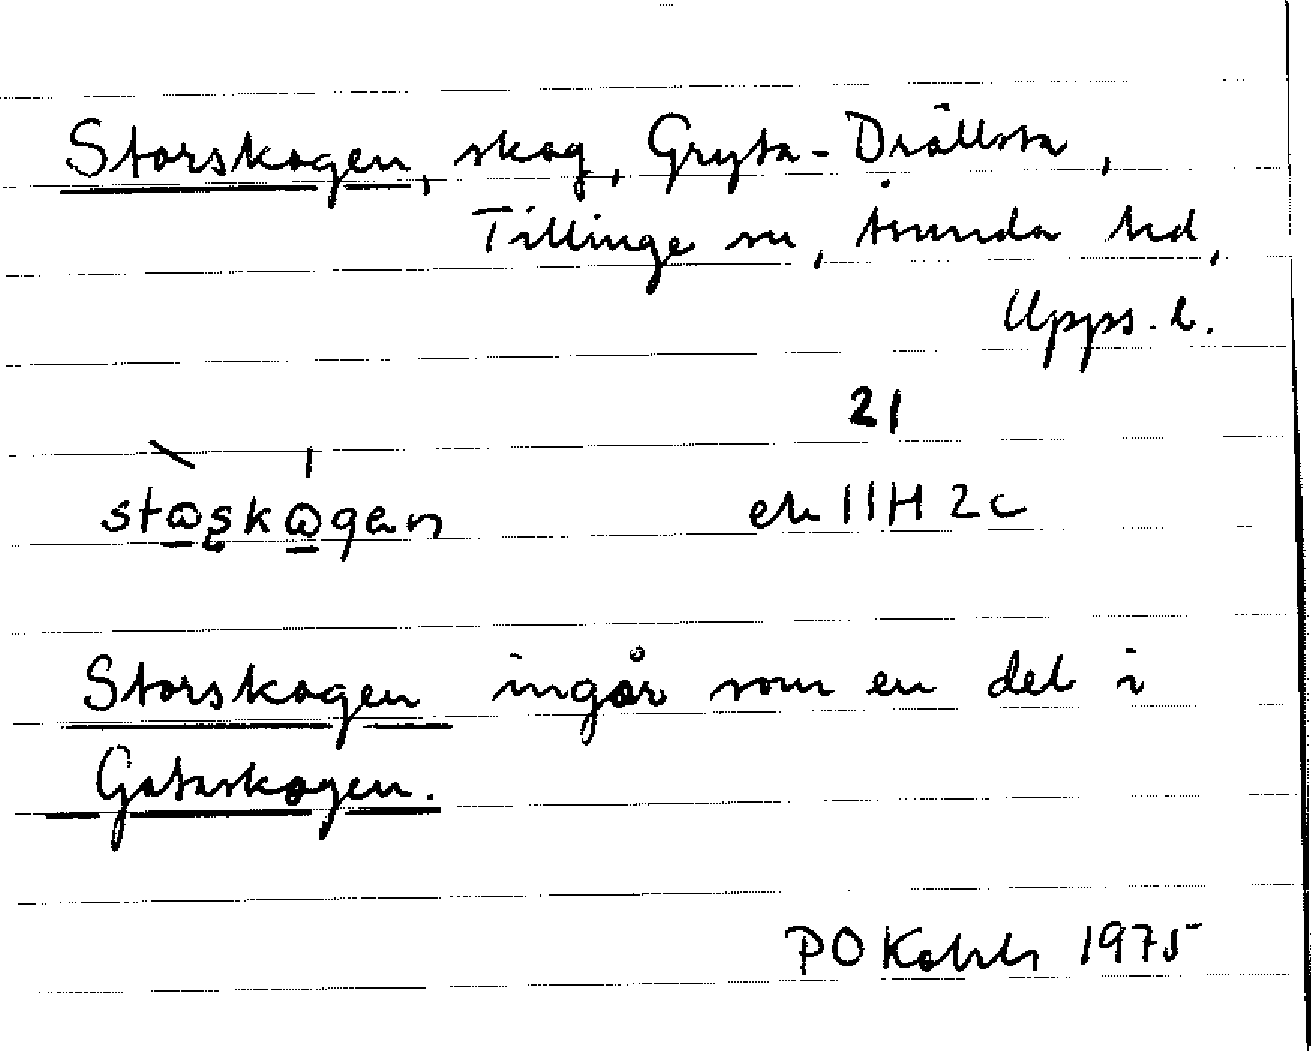 Storskogen, skog, Gryta-Drällsta,
Tillinge sn, Åsunda hd,
Upps. l.
21
ek 11H 2c
Storskogen ingår som en del i
Gataskogen.
PO 1975